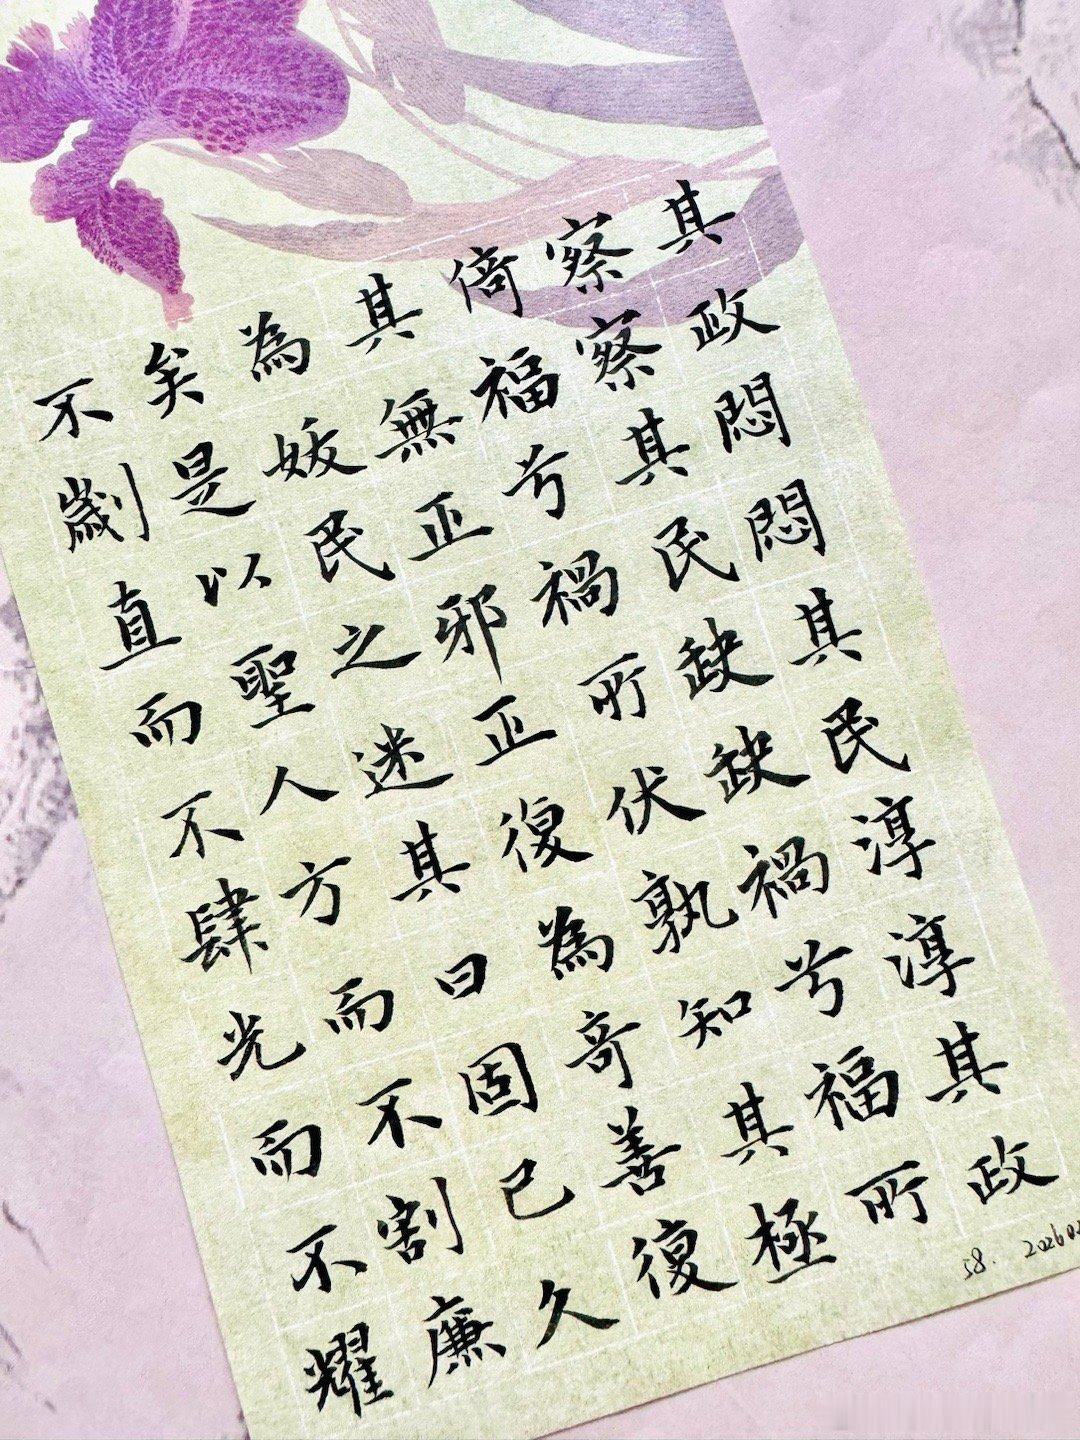 其政悶悶其民淳淳其政
察察其民缺缺禍兮福所
倚福兮禍所伏孰知其極
其無正邪正復為奇善復
為妭民之迷其曰固已久
矣是以聖人方而不割廉
不劌直而不肆光而不耀
58. 20260